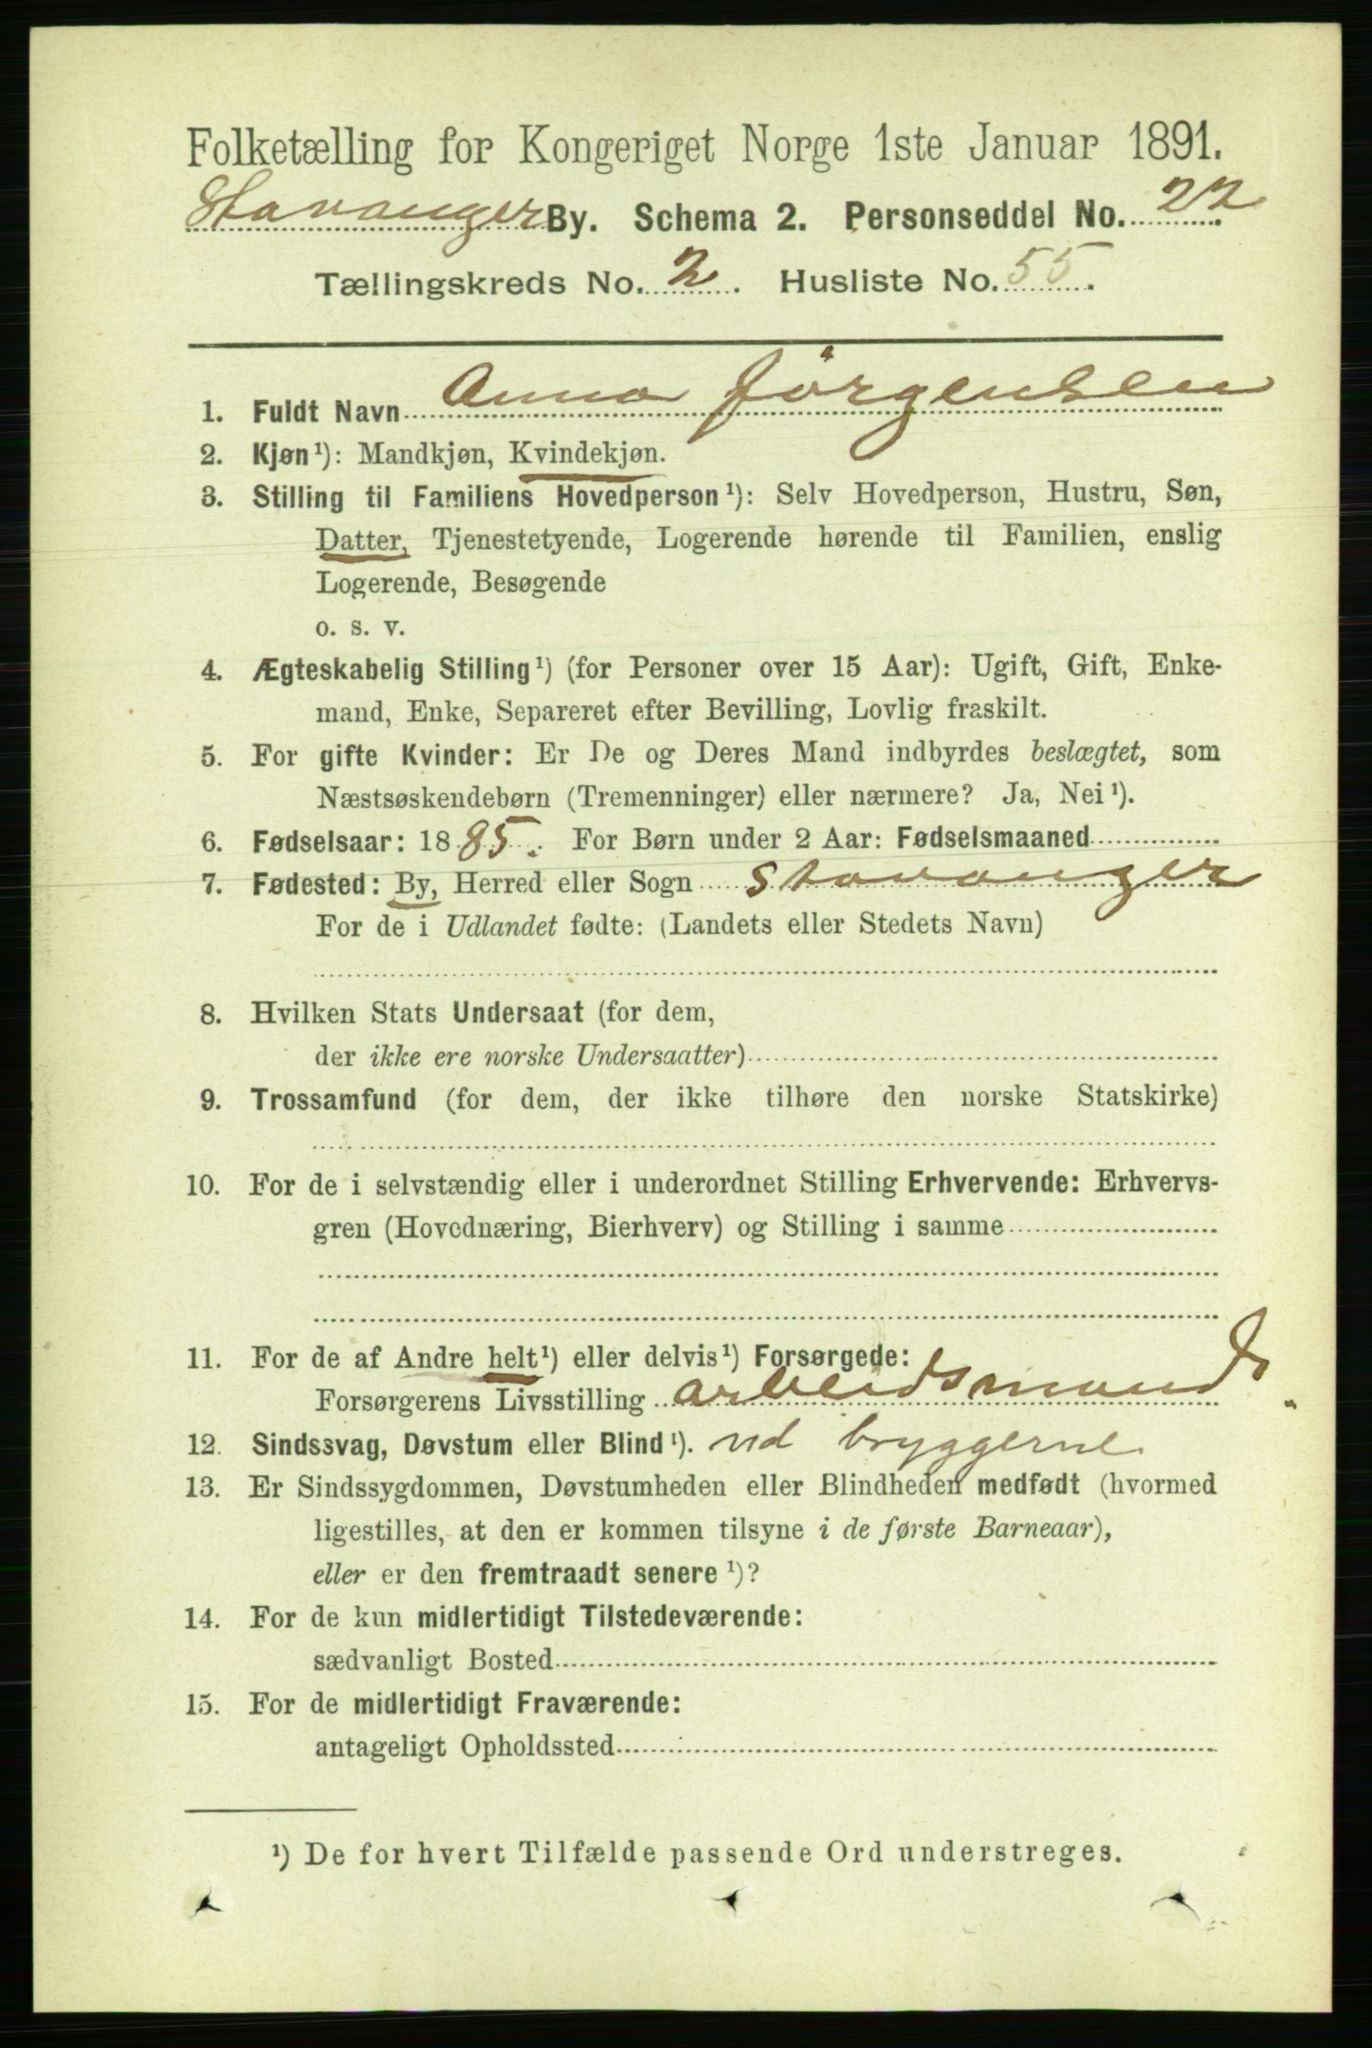 Folketælling for Kongeriget Norge 1ste Januar 1891.
Stavanger By. Schema 2. Personseddel No. 22.
Tællingskreds No. 2. Husliste No. 55.
1. Fuldt Navn Anna Jørgensen
2. Kjøn¹): Mandkjøn, Kvindekjøn.
3. Stilling til Familiens Hovedperson¹): Selv Hovedperson, Hustru, Søn,
Datter, Tjenestetyende, Logerende hørende til Familien, enslig
Logerende, Besøgende
o. s. v.
4. Ægteskabelig Stilling¹) (for Personer over 15 Aar): Ugift, Gift, Enke-
mand, Enke, Separeret efter Bevilling, Lovlig fraskilt.
5. For gifte Kvinder: Er De og Deres Mand indbyrdes beslægtet, som
Næstsøskendebørn (Tremenninger) eller nærmere? Ja, Nei¹).
6. Fødselsaar: 1885. For Børn under 2 Aar: Fødselsmaaned
7. Fødested: By, Herred eller Sogn Stavanger
For de i Udlandet fødte: (Landets eller Stedets Navn)
8. Hvilken Stats Undersaat (for dem,
der ikke ere norske Undersaatter)
9. Trossamfund (for dem, der ikke tilhøre den norske Statskirke)
10. For de i selvstændig eller i underordnet Stilling Erhvervende: Erhvervs-
gren (Hovednæring, Bierhverv) og Stilling i samme
11. For de af Andre helt¹) eller delvis¹) Forsørgede:
Forsørgerens Livsstilling arbeidsmand
12. Sindssvag, Døvstum eller Blind¹). ved bryggerne
13. Er Sindssygdommen, Døvstumheden eller Blindheden medfødt (hvormed
ligestilles, at den er kommen tilsyne i de første Barneaar),
eller er den fremtraadt senere¹)?
14. For de kun midlertidigt Tilstedeværende:
sædvanligt Bosted
15. For de midlertidigt Fraværende:
antageligt Opholdssted
¹) De for hvert Tilfælde passende Ord understreges.